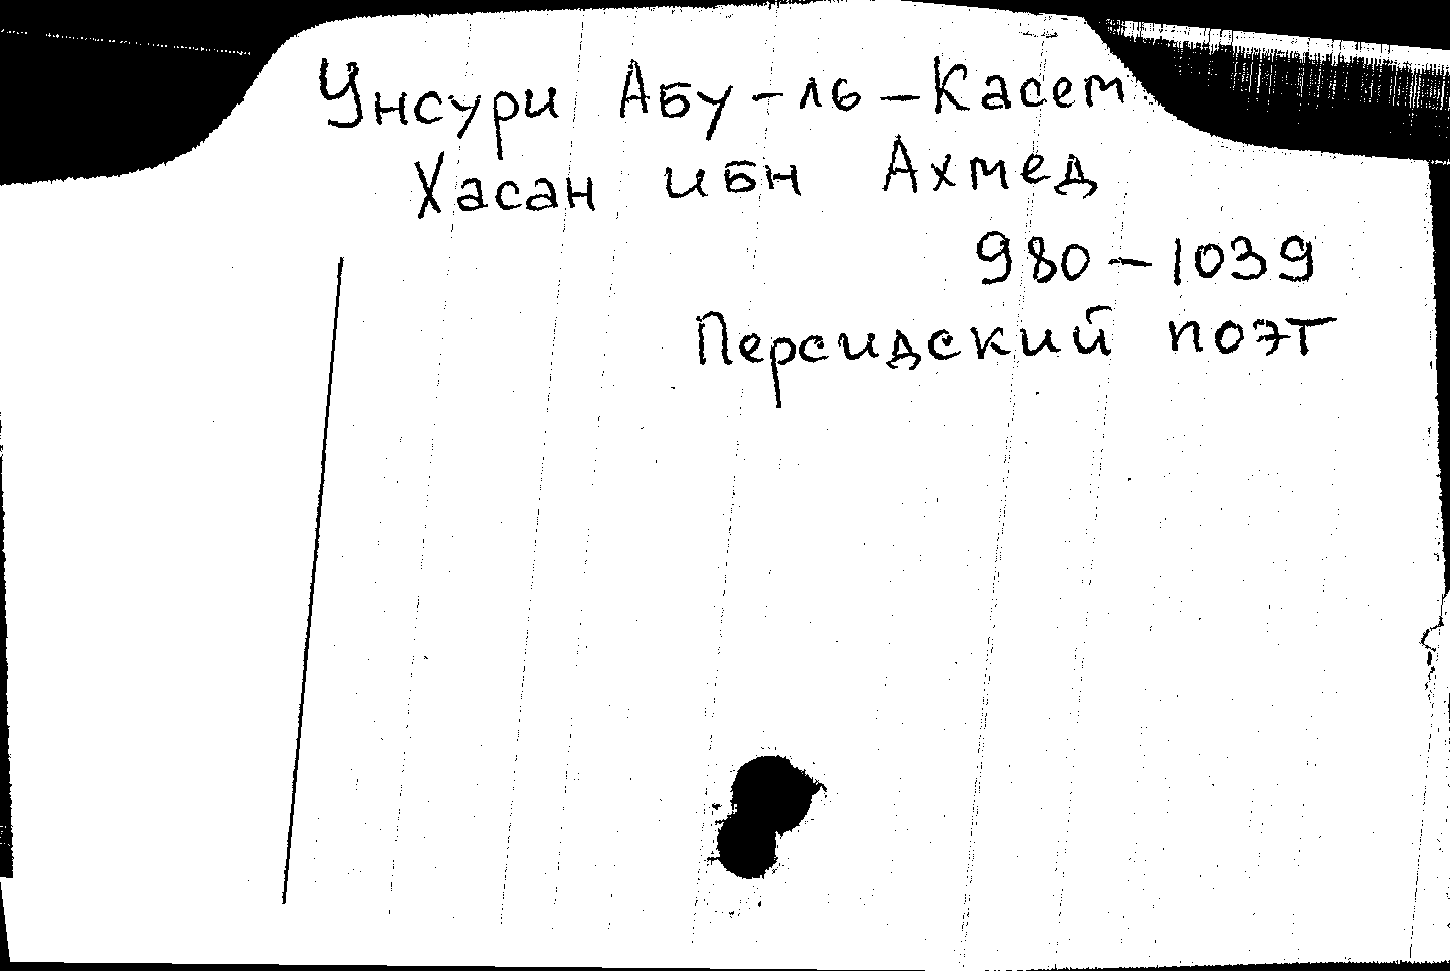 Унсури Абу-ль-Касем
Хасан ибн Ахмед
980-1039
Персидский поэт